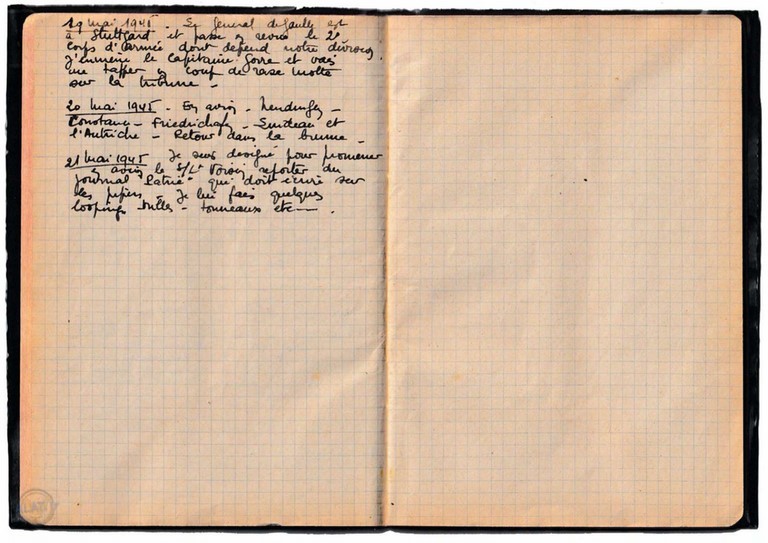 19 mai 1945 - Le Général de Gaulle est
à Stuttgard et passe en revue le 2e
corps d'Armée dont dépend notre division
J'emmène le Capitaine Gorre et vais
me tapper un coup de rase motte
sur la tribune -
20 mai 1945 - En avion -
Constance - Friedrichafen - et
l'Autriche - Retour dans la brume -
21 mai 1945 Je suis designé pour promener
en avion le S/Lt Voisin reporter du
journal "Patrie" qui doit écrire sur
les pipers Je lui fais quelques
loopings vrilles - tonneaux etc -